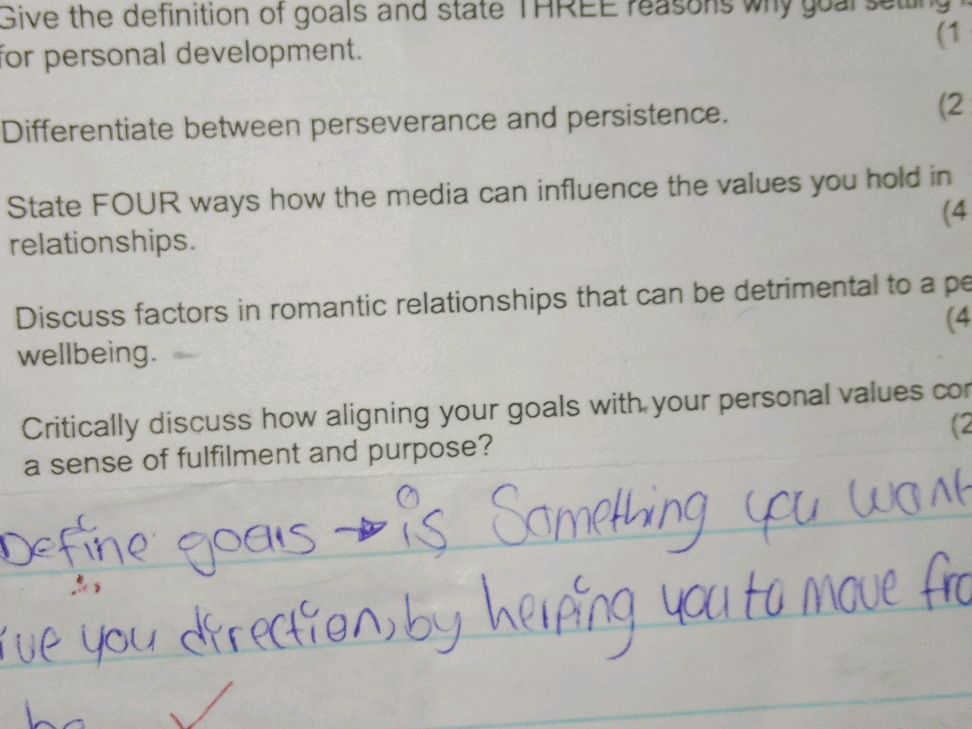 Give the definition of goals and state THREE reasons why goal setting
for personal development.
(1
Differentiate between perseverance and persistence.
(2
State FOUR ways how the media can influence the values you hold in
relationships.
(4
Discuss factors in romantic relationships that can be detrimental to a pe
wellbeing.
(4
Critically discuss how aligning your goals with your personal values con
a sense of fulfilment and purpose?
(2
Define goals → is Something you want
ive you direction, by helping you to move fro
be